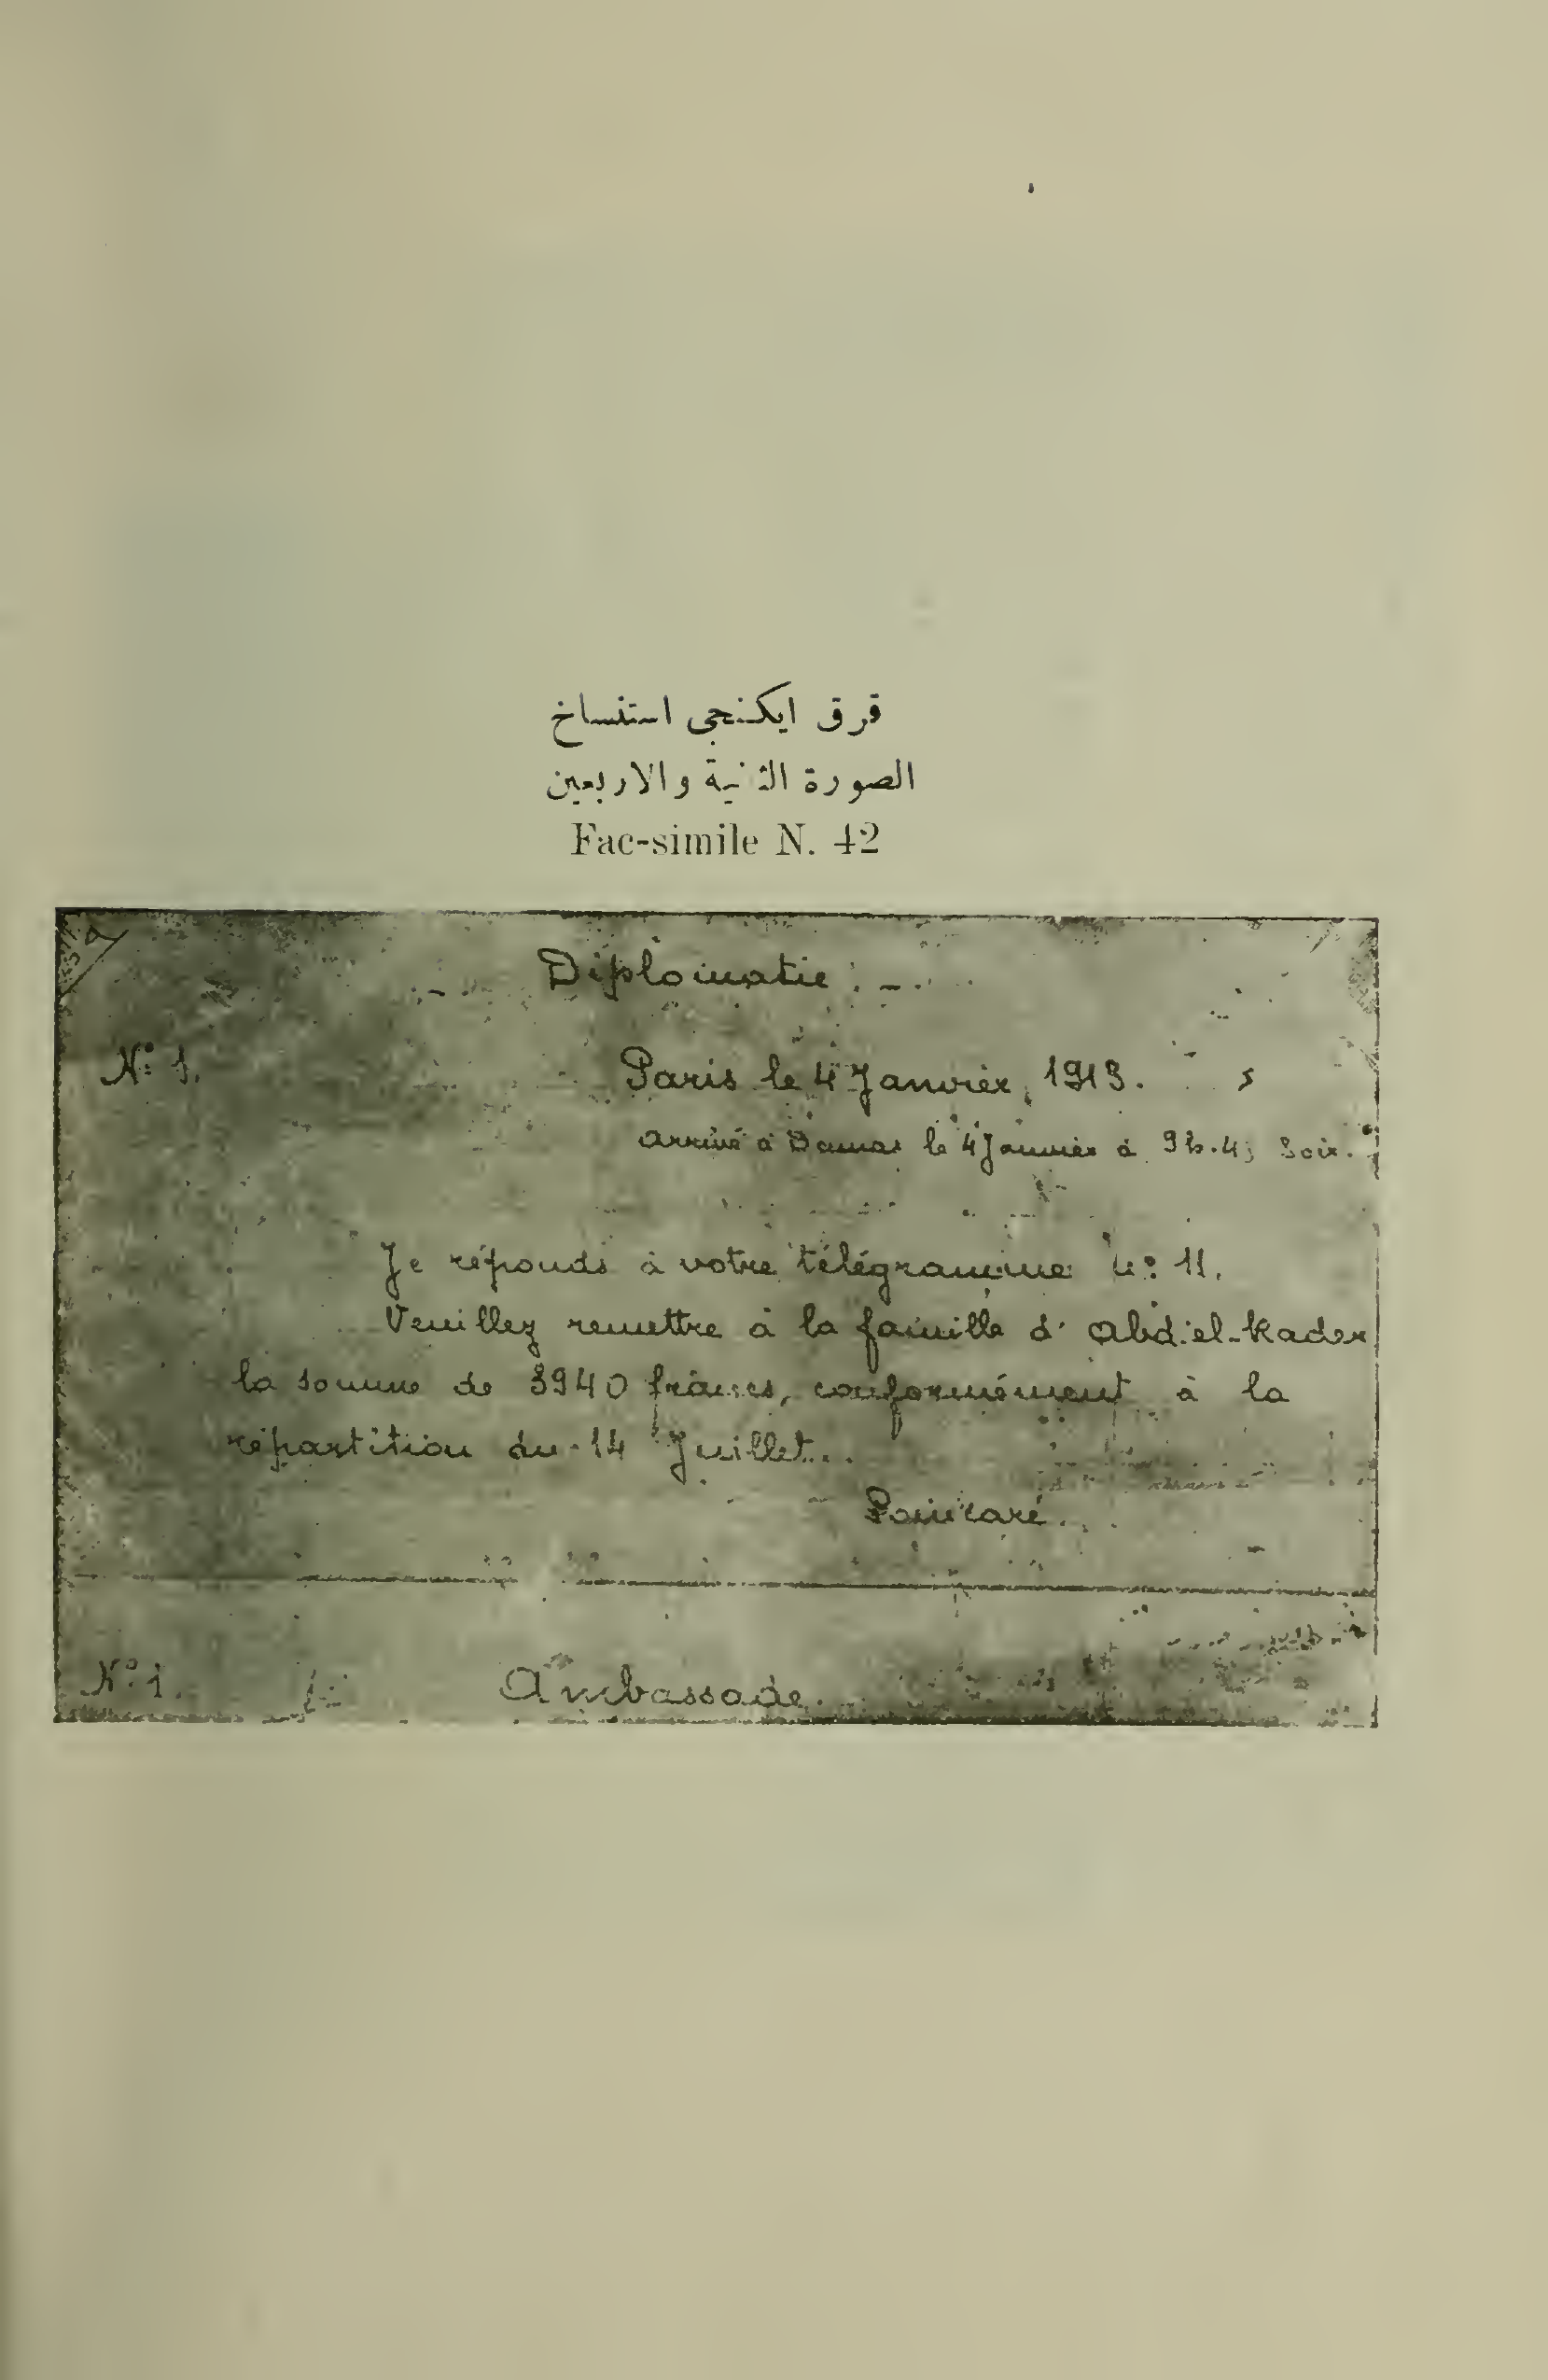 قرق ايكنجى استنساخ
الصورة الثانية والاربعين
Fac-simile N. 42
Diplomatie.
N° 1.
Paris le 4 Janvier, 1913.
Arrivé à Damas le 4 Janvier à 9h.4 Soir.
Je réponds à votre télégramme n° 11.
Veuillez remettre à la famille d'Abd-el-Kader
la somme de 3940 francs, conformément à la
répartition du 14 Juillet.
Poincaré.
N° 1. Ambassade.